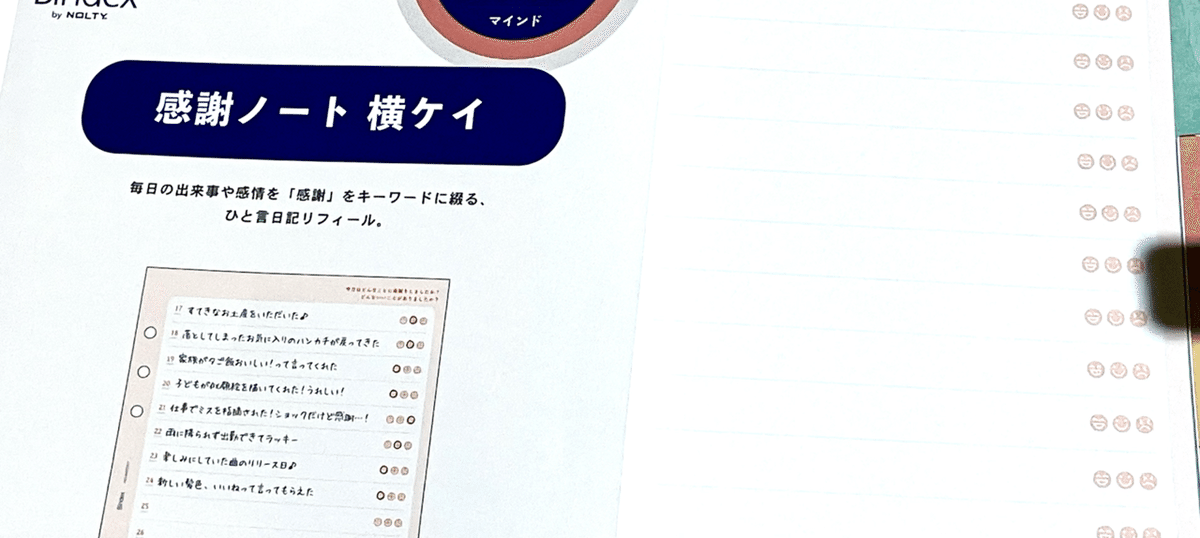 Bindex
by NOLTY.
マインド
感謝ノート 横ケイ
毎日の出来事や感情を「感謝」をキーワードに綴る、
ひと言日記リフィール。
今日はどんなことに感謝をしましたか?
どんないいことがありましたか?
17 すてきなお土産をいただいた♪
18 落としてしまったお気に入りのハンカチが戻ってきた
19 家族が夕ご飯おいしい!って言ってくれた
20 子どもが似顔絵を描いてくれた!うれしい!
21 仕事でミスを指摘された!ショックだけど感謝…!
22 雨に降られず出勤できてラッキー
23 楽しみにしていた曲のリリース日♪
24 新しい髪色、いいねって言ってもらえた
25
26
Bindex